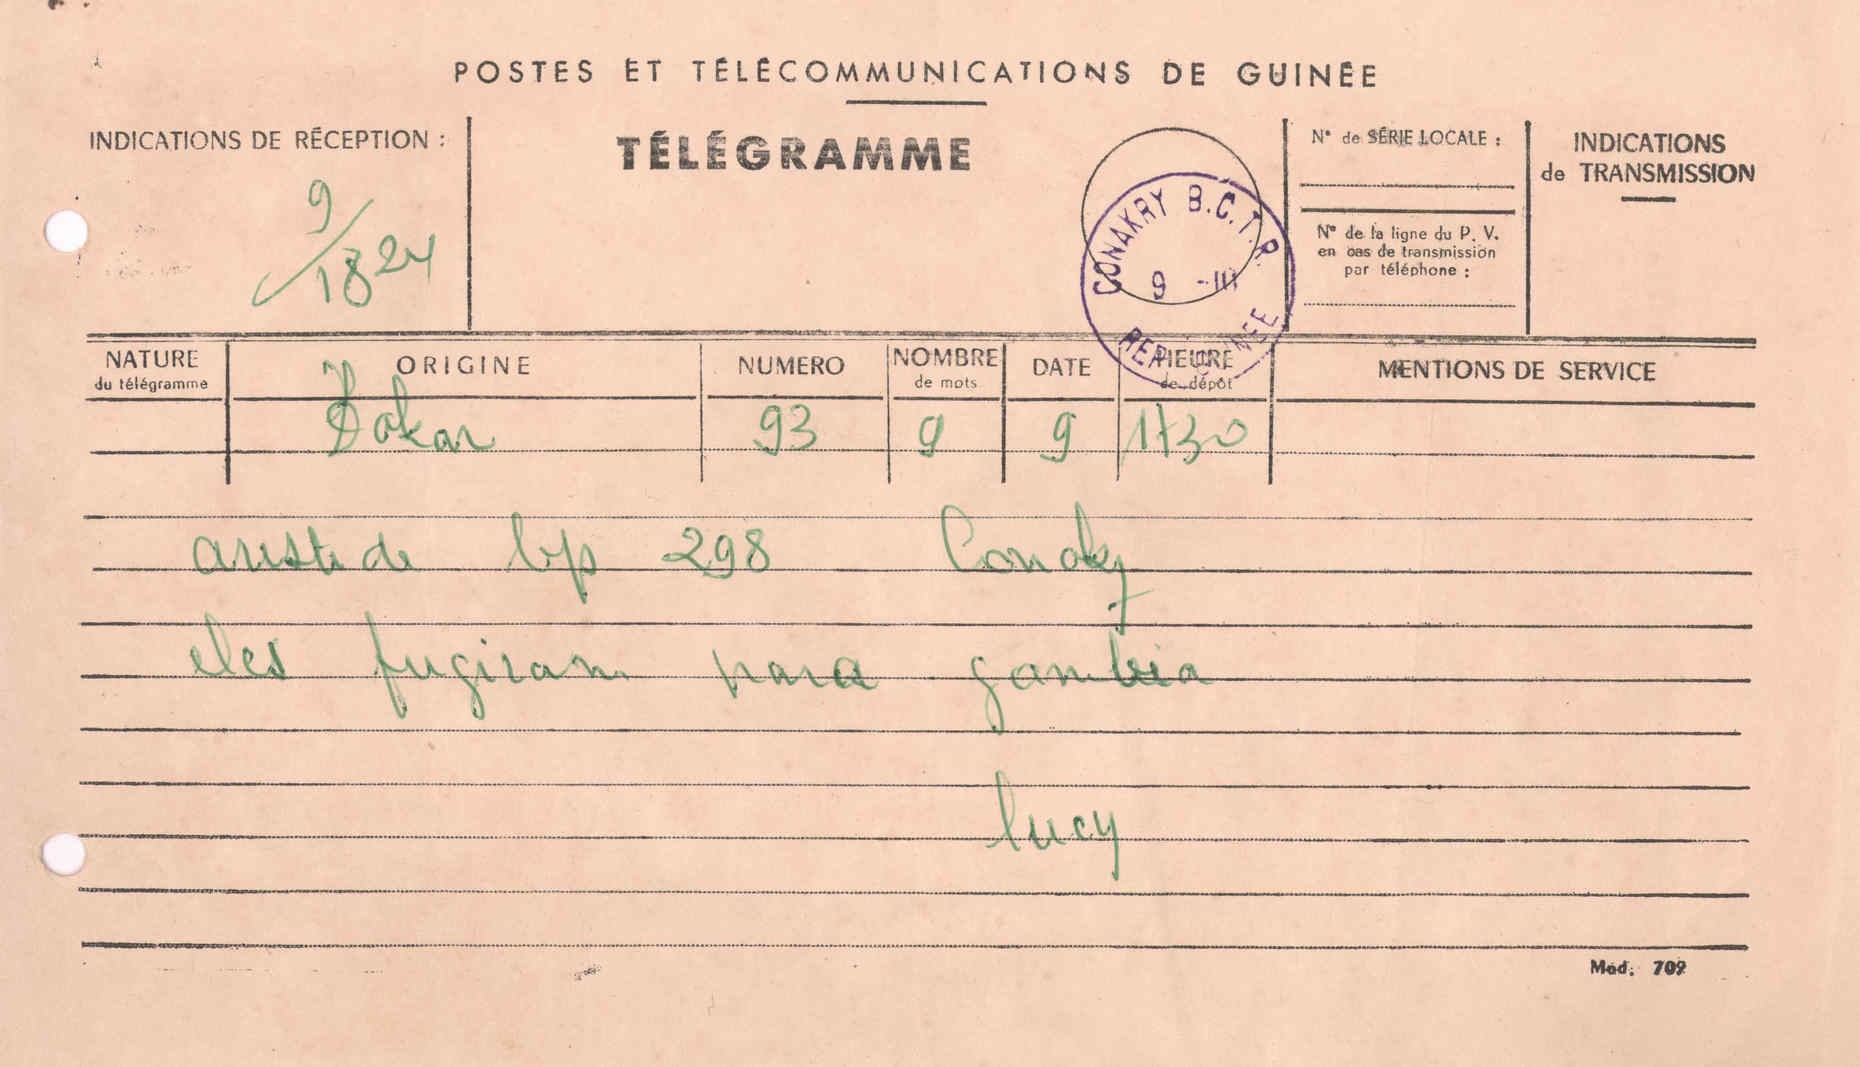 POSTES ET TÉLÉCOMMUNICATIONS DE GUINÉE
INDICATIONS DE RÉCEPTION :
9/1824
TÉLÉGRAMME
CONAKRY B.C.T.R.
9 -III
REP. GUINEE
N° de SÉRIE LOCALE :
N° de la ligne du P. V.
en cas de transmission
par téléphone :
INDICATIONS
de TRANSMISSION
NATURE
du télégramme
ORIGINE
NUMERO
NOMBRE
de mots
DATE
HEURE
de dépôt
MENTIONS DE SERVICE
Dakar 93 9 9 1730
aristide bp 298 Conaky
eles fugiram para gambia
lucy
Mod. 709